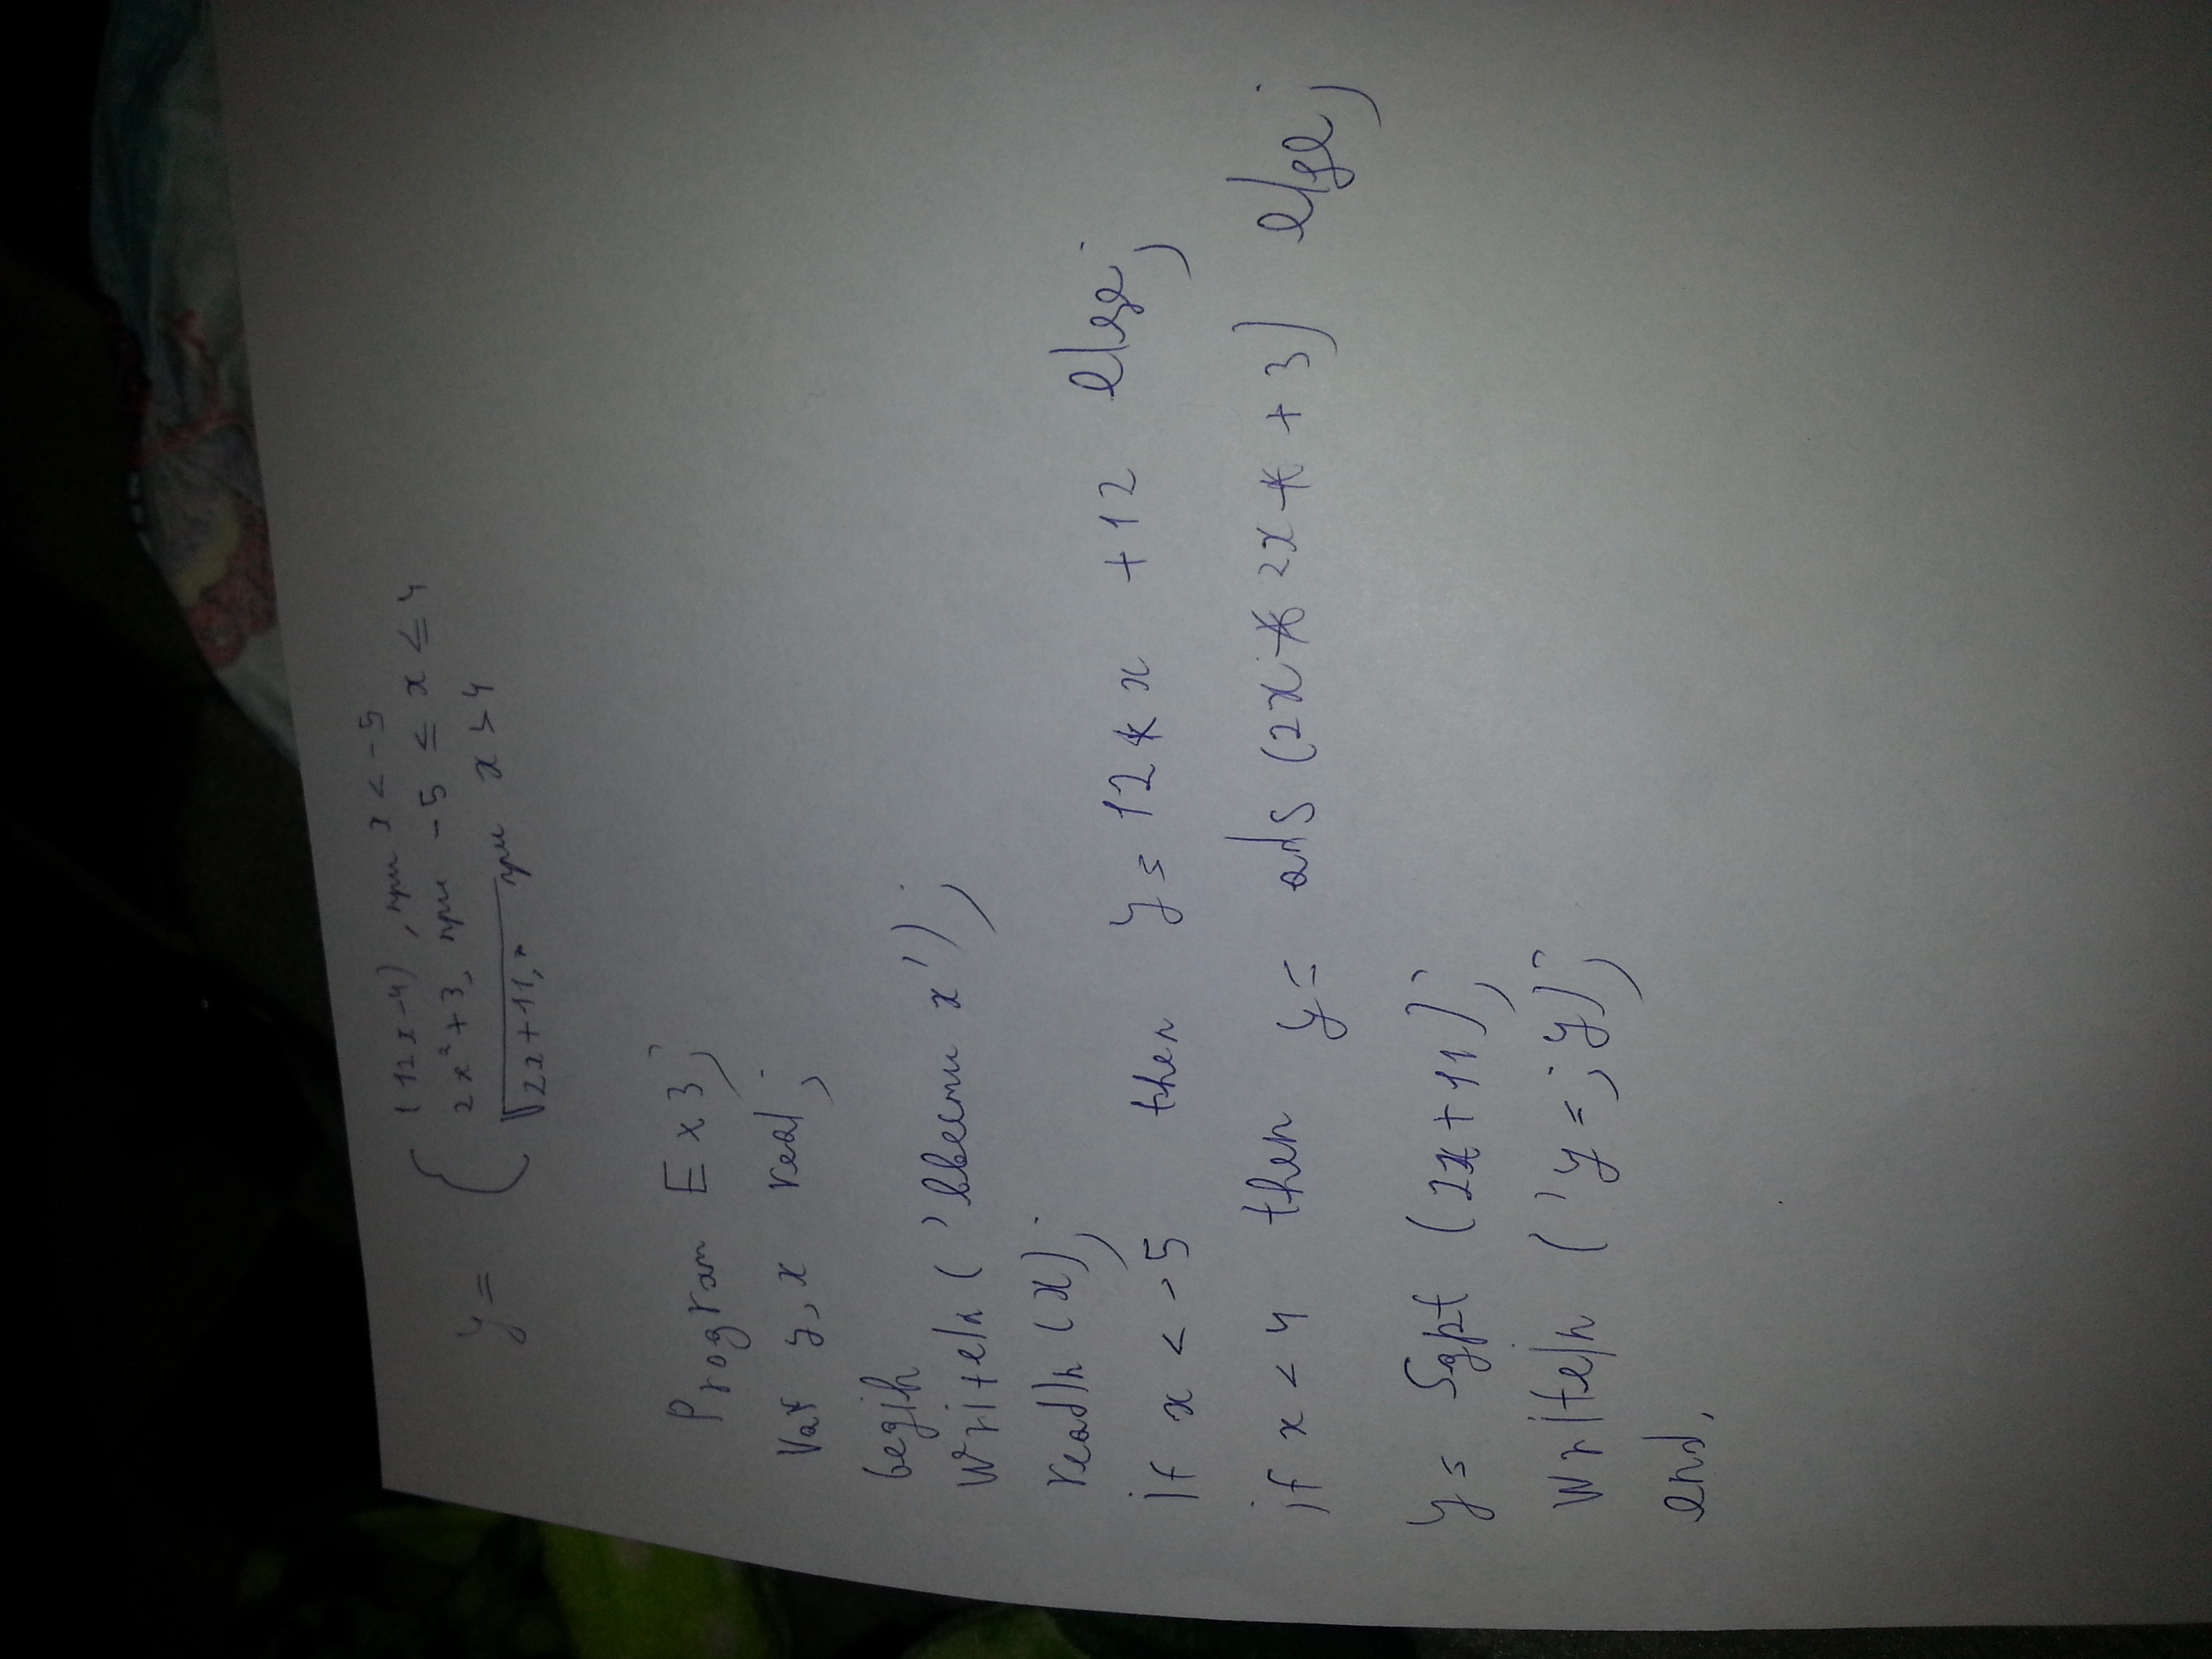 y = { (12x-4), при x < -5
2x²+3, при -5 ≤ x ≤ 4
√2x+11, при x > 4
Program Ex3;
Var y, x real;
begin
Writeln ('ввести x');
readln (x);
if x < -5 then y = 12 * x + 12 else;
if x < 4 then y = abs (2x * 2x * + 3) else;
y = Sqpt (2x + 11);
Writeln ('y = ; y)';
end.